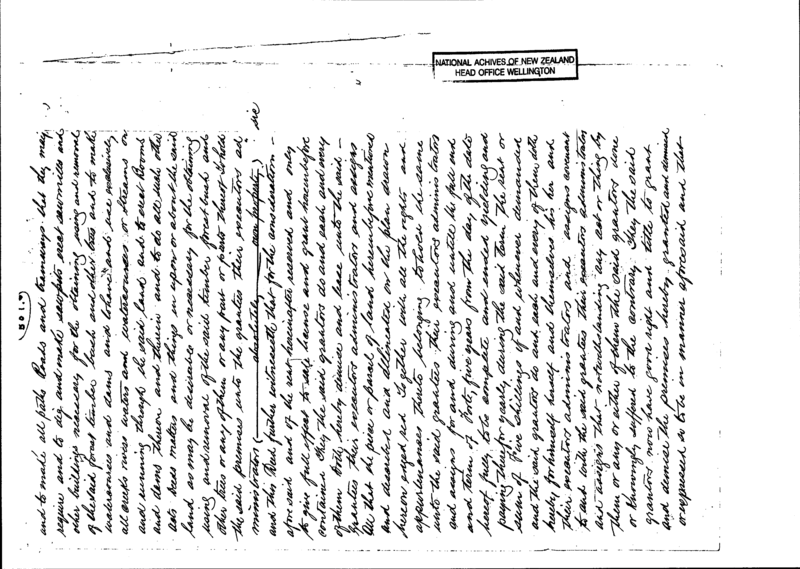 NATIONAL ACHIVES OF NEW ZEALAND
HEAD OFFICE WELLINGTON
and to make all paths Roads and tramways that they may
require and to dig and make sawpits erect sawmills and
other buildings necessary for the obtaining using and removal
of the said forest timber bush and other trees and to make
watercourses and dams and to have and use waterways
all creeks rivers waters and watercourses or streams on
and running through the said land and to erect Booms
and dams thereon and therein and to do all such other
acts deeds matters and things in upon or about the said
land as may be desirable or necessary for the obtaining
using and removal of the said timber forest bush and
other trees or any of them or any part or parts thereof To hold
the said premises unto the grantees their executors ad
ministrators
and this Deed further witnesseth that for the consideration
aforesaid and of the rent hereinafter reserved and only
to give full effect to said licence and grant hereinbefore
contained they the said grantors do and each and every
of them doth hereby demise and lease unto the said
grantees their executors administrators and assigns
All that the piece or parcel of land hereinbefore mentioned
and described and delineated on the plan drawn
hereon edged red Together with all the rights and
appurtenances thereto belonging to hold the same
unto the said grantees their executors administrators
and assigns for and during and until the full end
and term of Forty five years from the day of the date
hereof fully to be complete and ended yielding and
paying therefor yearly during the said term the rent or
sum of Five shillings if and whenever demanded
and the said grantors do and each and every of them doth
hereby for himself herself and themselves his her and
their executors administrators and assigns covenant
to and with the said grantees their executors administrators
and assigns that notwithstanding any act or thing by
them or any or either of them the said grantors done
or knowingly suffered to the contrary They the said
grantors now have good right and title to grant
and demise the premises hereby granted and demised
or expressed so to be in manner aforesaid and that